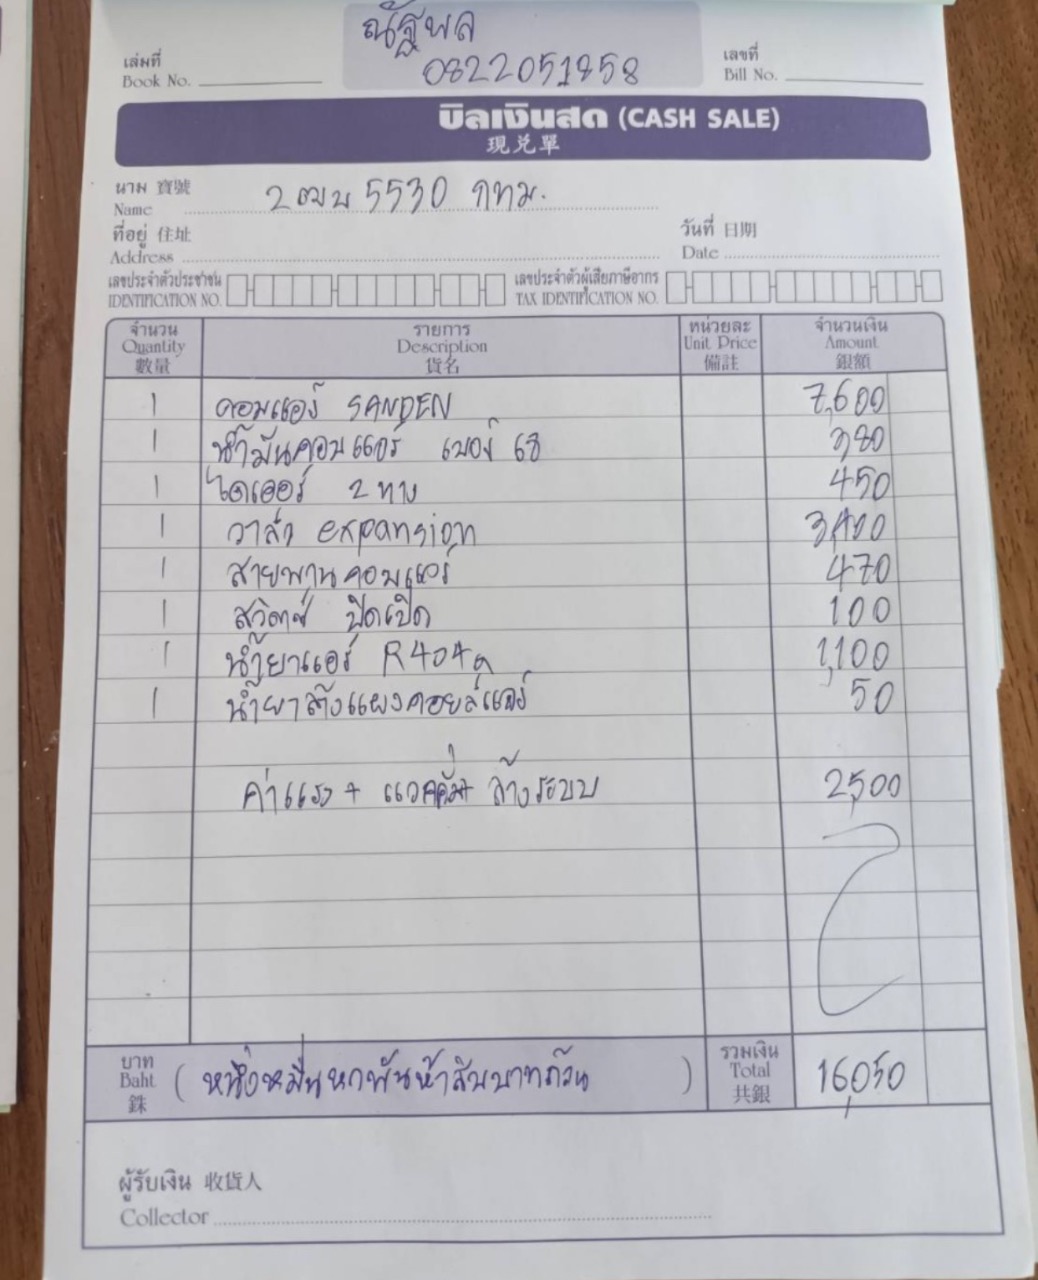 ณัฐพล
0822051858
เล่มที่
Book No.
เลขที่
Bill No.
บิลเงินสด (CASH SALE)
現兑單
นาม 寶號
Name
2ฒน 5530 กทม.
ที่อยู่ 住址
Address
วันที่ 日期
Date
เลขประจำตัวประชาชน
IDENTIFICATION NO.
เลขประจำตัวผู้เสียภาษีอากร
TAX IDENTIFICATION NO.
จำนวน รายการ หน่วยละ จำนวนเงิน
Quantity Description Unit Price Amount
數量 貨名 備註 銀額
1 คอมแอร์ SANDEN 7,600
1 น้ำมันคอมแอร์ เบอร์ 68 380
1 ไดเออร์ 2 ทาง 450
1 วาล์ว expansion
1 สายพานคอมแอร์ 470
1 สวิตซ์ ปิดเปิด 100
1 น้ำยาแอร์ R404a 1,100
1 น้ำยาล้างแผงคอยล์แอร์ 50
ค่าแรง + แวคคั่ม ล้างระบบ 2,500
บาท
Baht
銖
(หนึ่งหมื่นหกพันห้าสิบบาทถ้วน)
รวมเงิน
Total
共銀
16,050
ผู้รับเงิน 收貨人
Collector